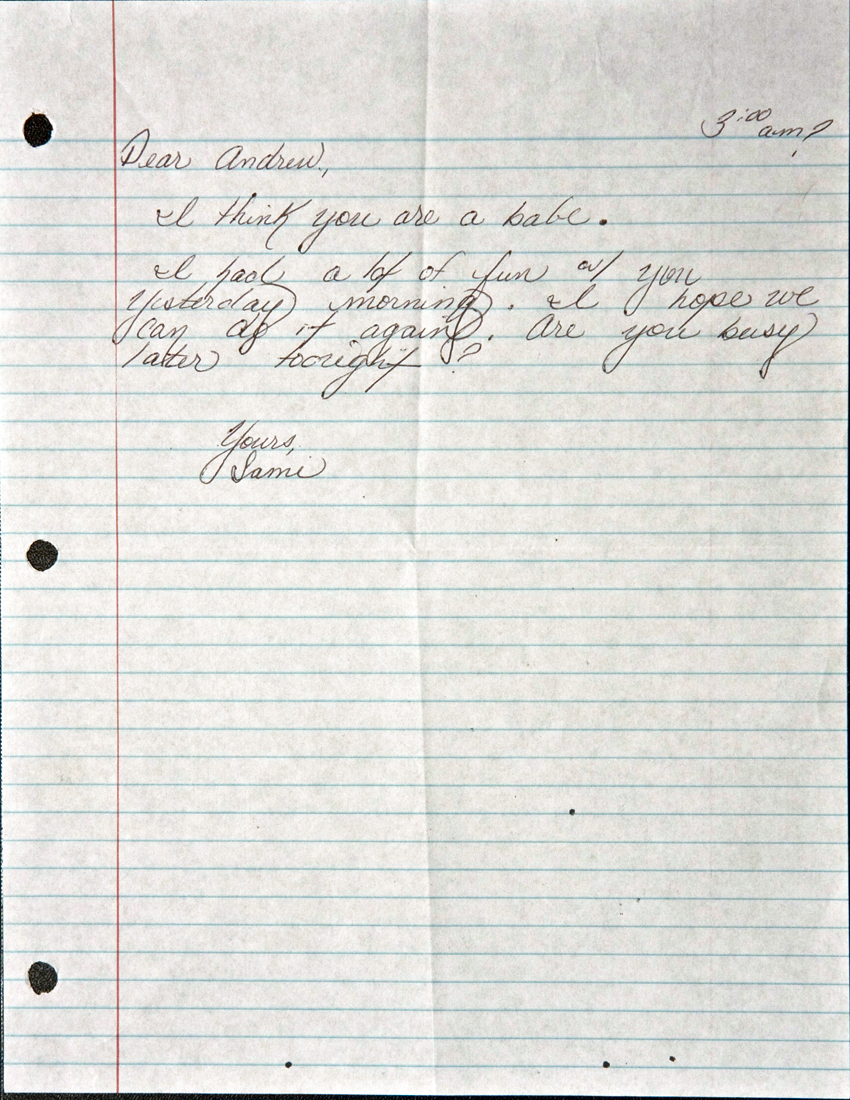 3:00
am?
Dear Andrew,
I think you are a babe.
I had a lot of fun w/ you
yesterday morning. I hope we
can do it again. Are you busy
later tonight?
Yours,
Sami